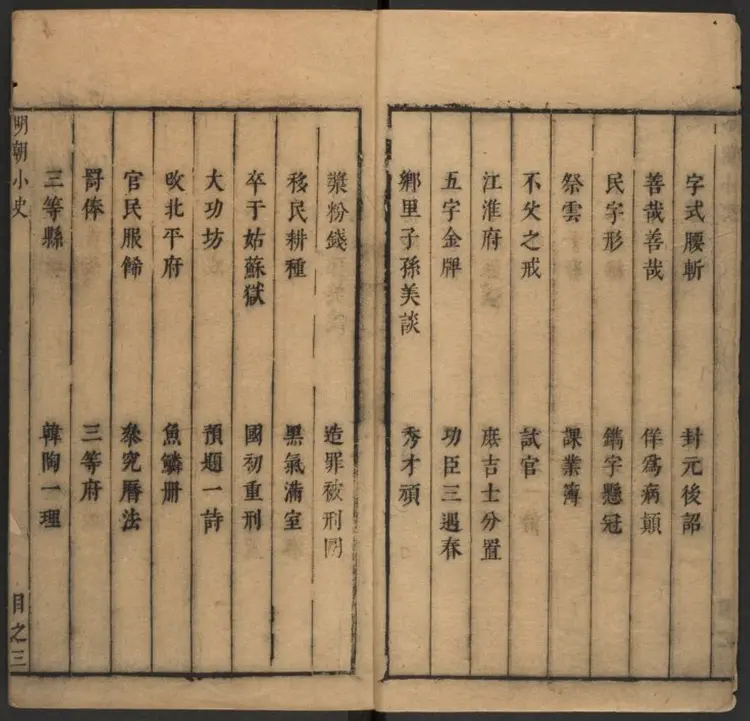 字式腰斬　封元後詔
善哉善哉　佯爲病顛
民字形　鐫字懸冠
祭雲　課業簿
不父之戒　試官
江淮府　庶吉士分置
五字金牌　功臣三遇春
鄉里子孫美談　秀才頑
漿粉錢　造罪被刑
移民耕種　黑氣滿室
卒于姑蘇獄　國初重刑
大功坊　預題一詩
改北平府　魚鱗册
官民服餙　叅究曆法
罰俸　三等府
三等縣　韓陶一理
明朝小史　目之三